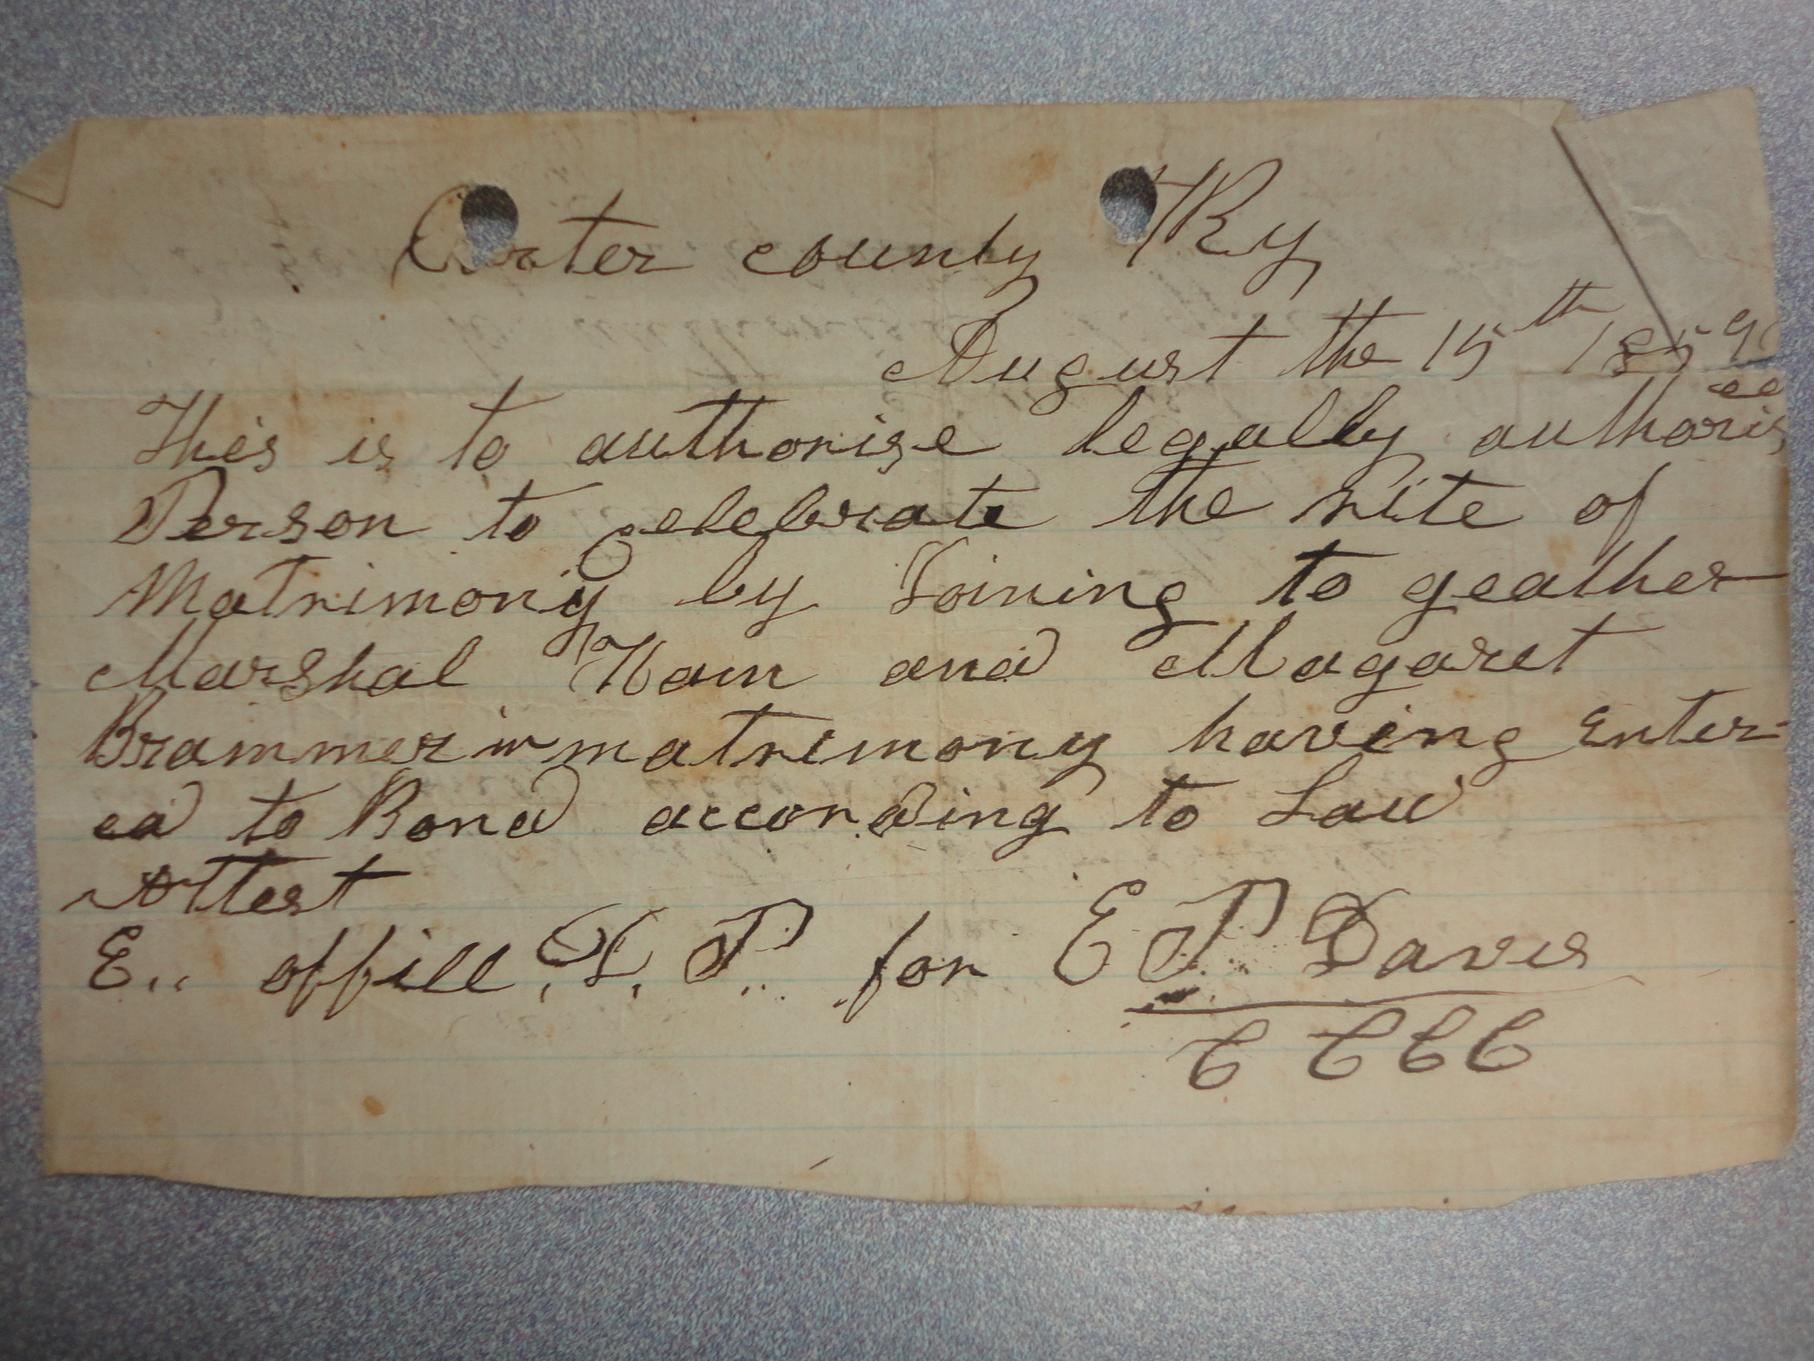 Carter county Ky
August the 15th 1859
This is to authorise legally authoris
ee
Person to celebrate the rite of
Matrimony by Joining to geather
Marshal Ham and Magaret
Brammer in matrimony having Enter-
ed to Bond according to Law
Attest
E.. offill, D, P.. for E P. Davis
C C C C